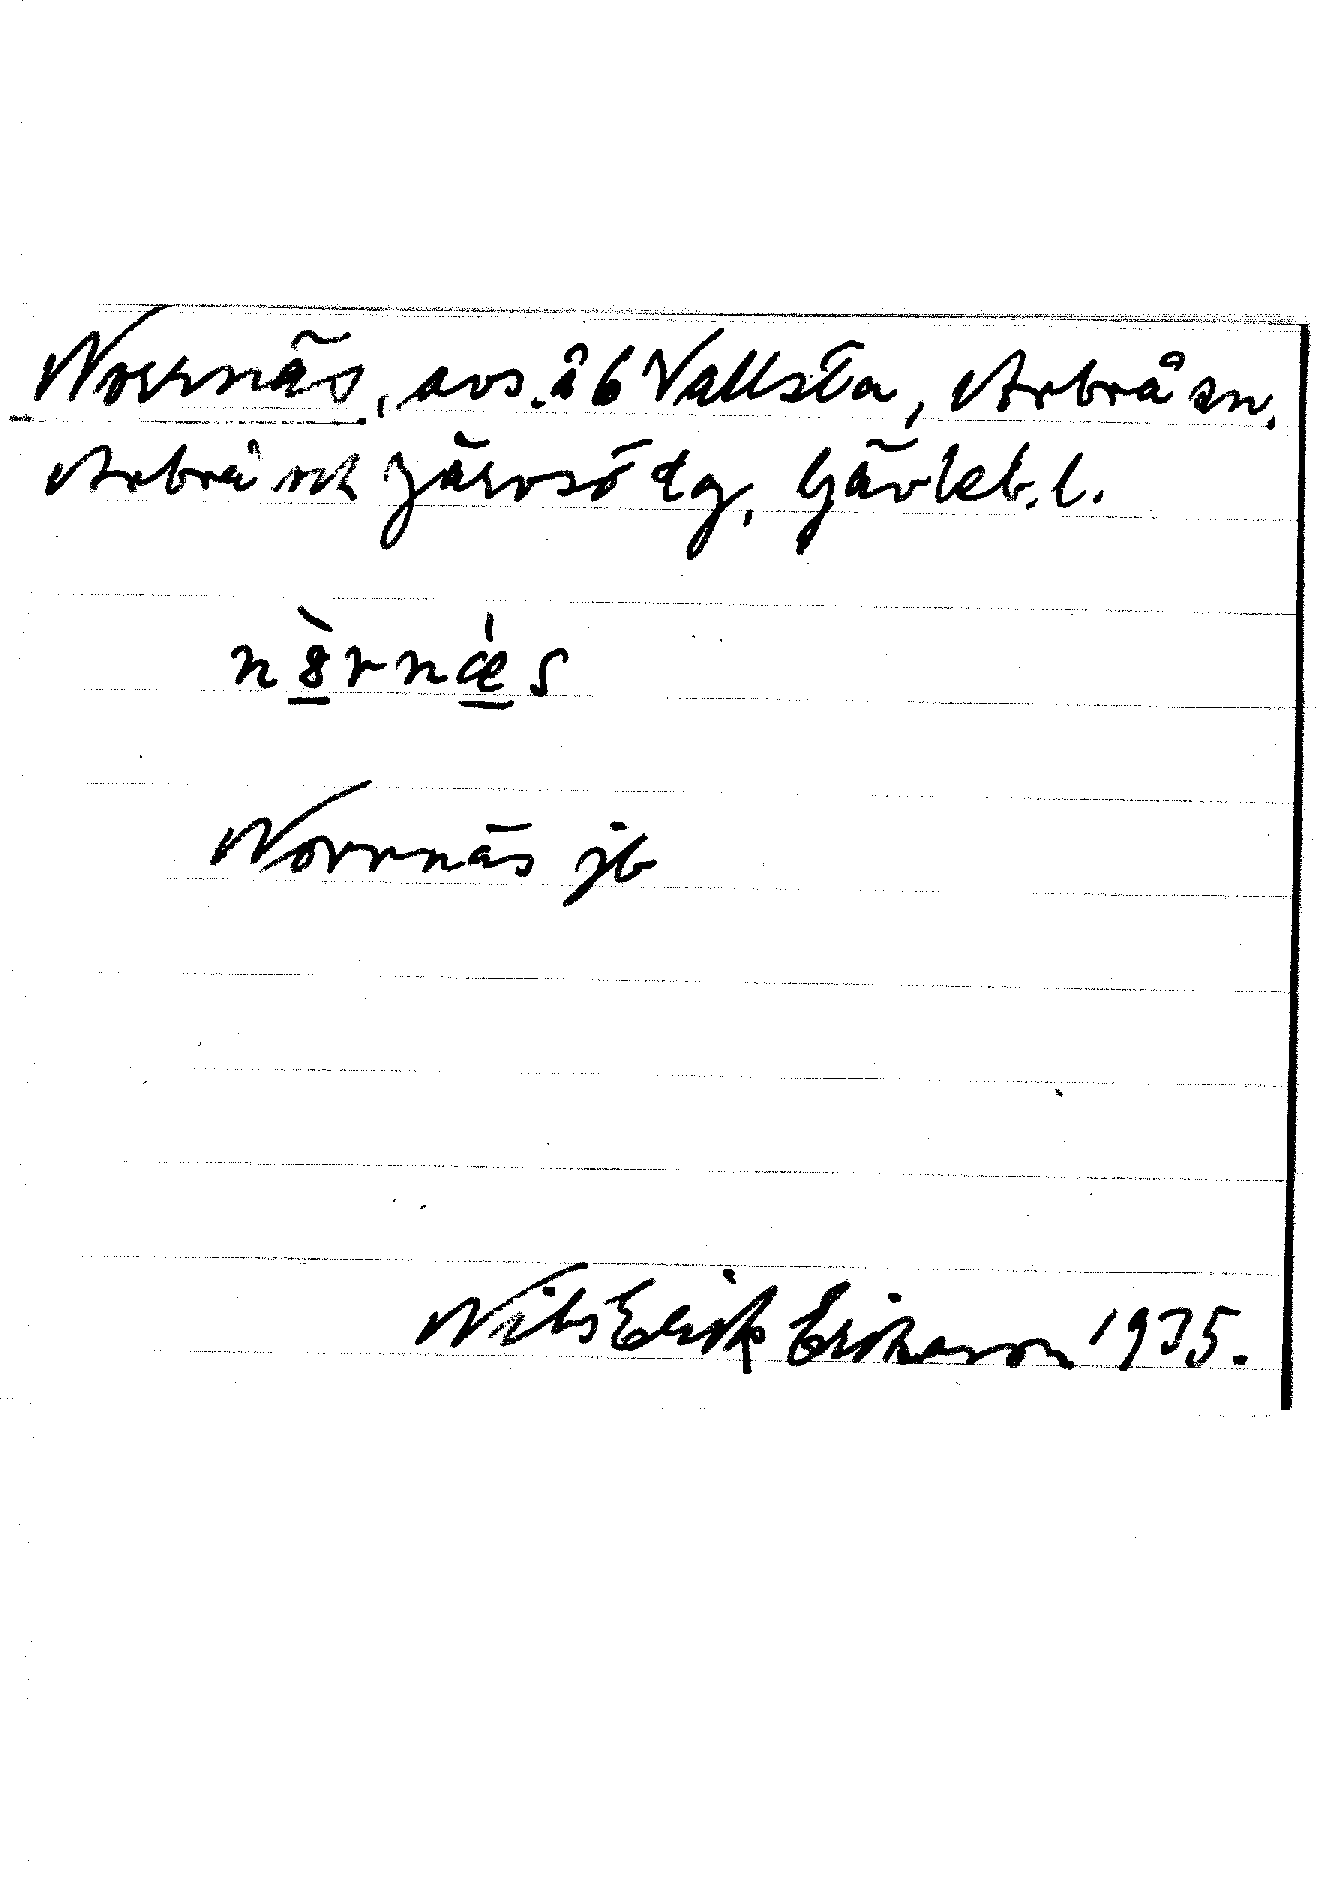 Norrnäs, avs. å 6 Vallsta, Arbrå sn,
Arbrå och Järvsö tg, Gävleb. l.
nȍrnæ̍s
Norrnäs jb
Nils Erik Erikson 1935.